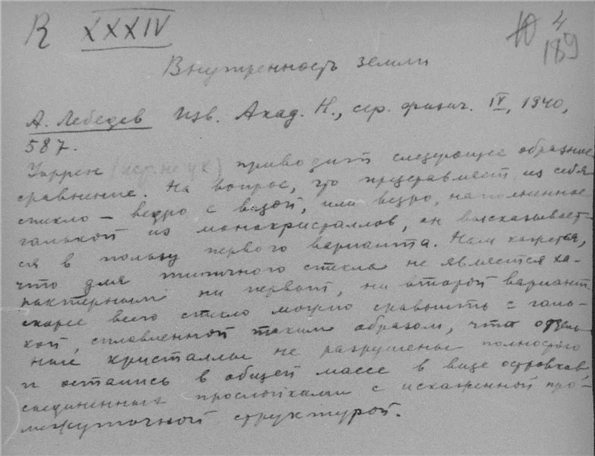 R XXXIV
4
189
Внутренность земли
А. Лебедев Изв. Акад. Н., сер. физич. IV, 1940,
587.
Уоррен (ист. не ук.) приводит следующее образное
сравнение. На вопрос, что представляет из себя
стекло – ведро с водой, или ведро, наполненное
галькой из монокристаллов, он высказывает-
ся в пользу первого варианта. Нам кажется,
что для типичного стекла не является ха-
рактерным ни первый, ни второй вариант
скорее всего стекло можно сравнить с галь-
кой, сплавленной таким образом, что отдель-
ные кристаллы не разрушены полностью
и остались в общей массе в виде островков,
соединенных прослойками с искаженной про-
межуточной структурой.